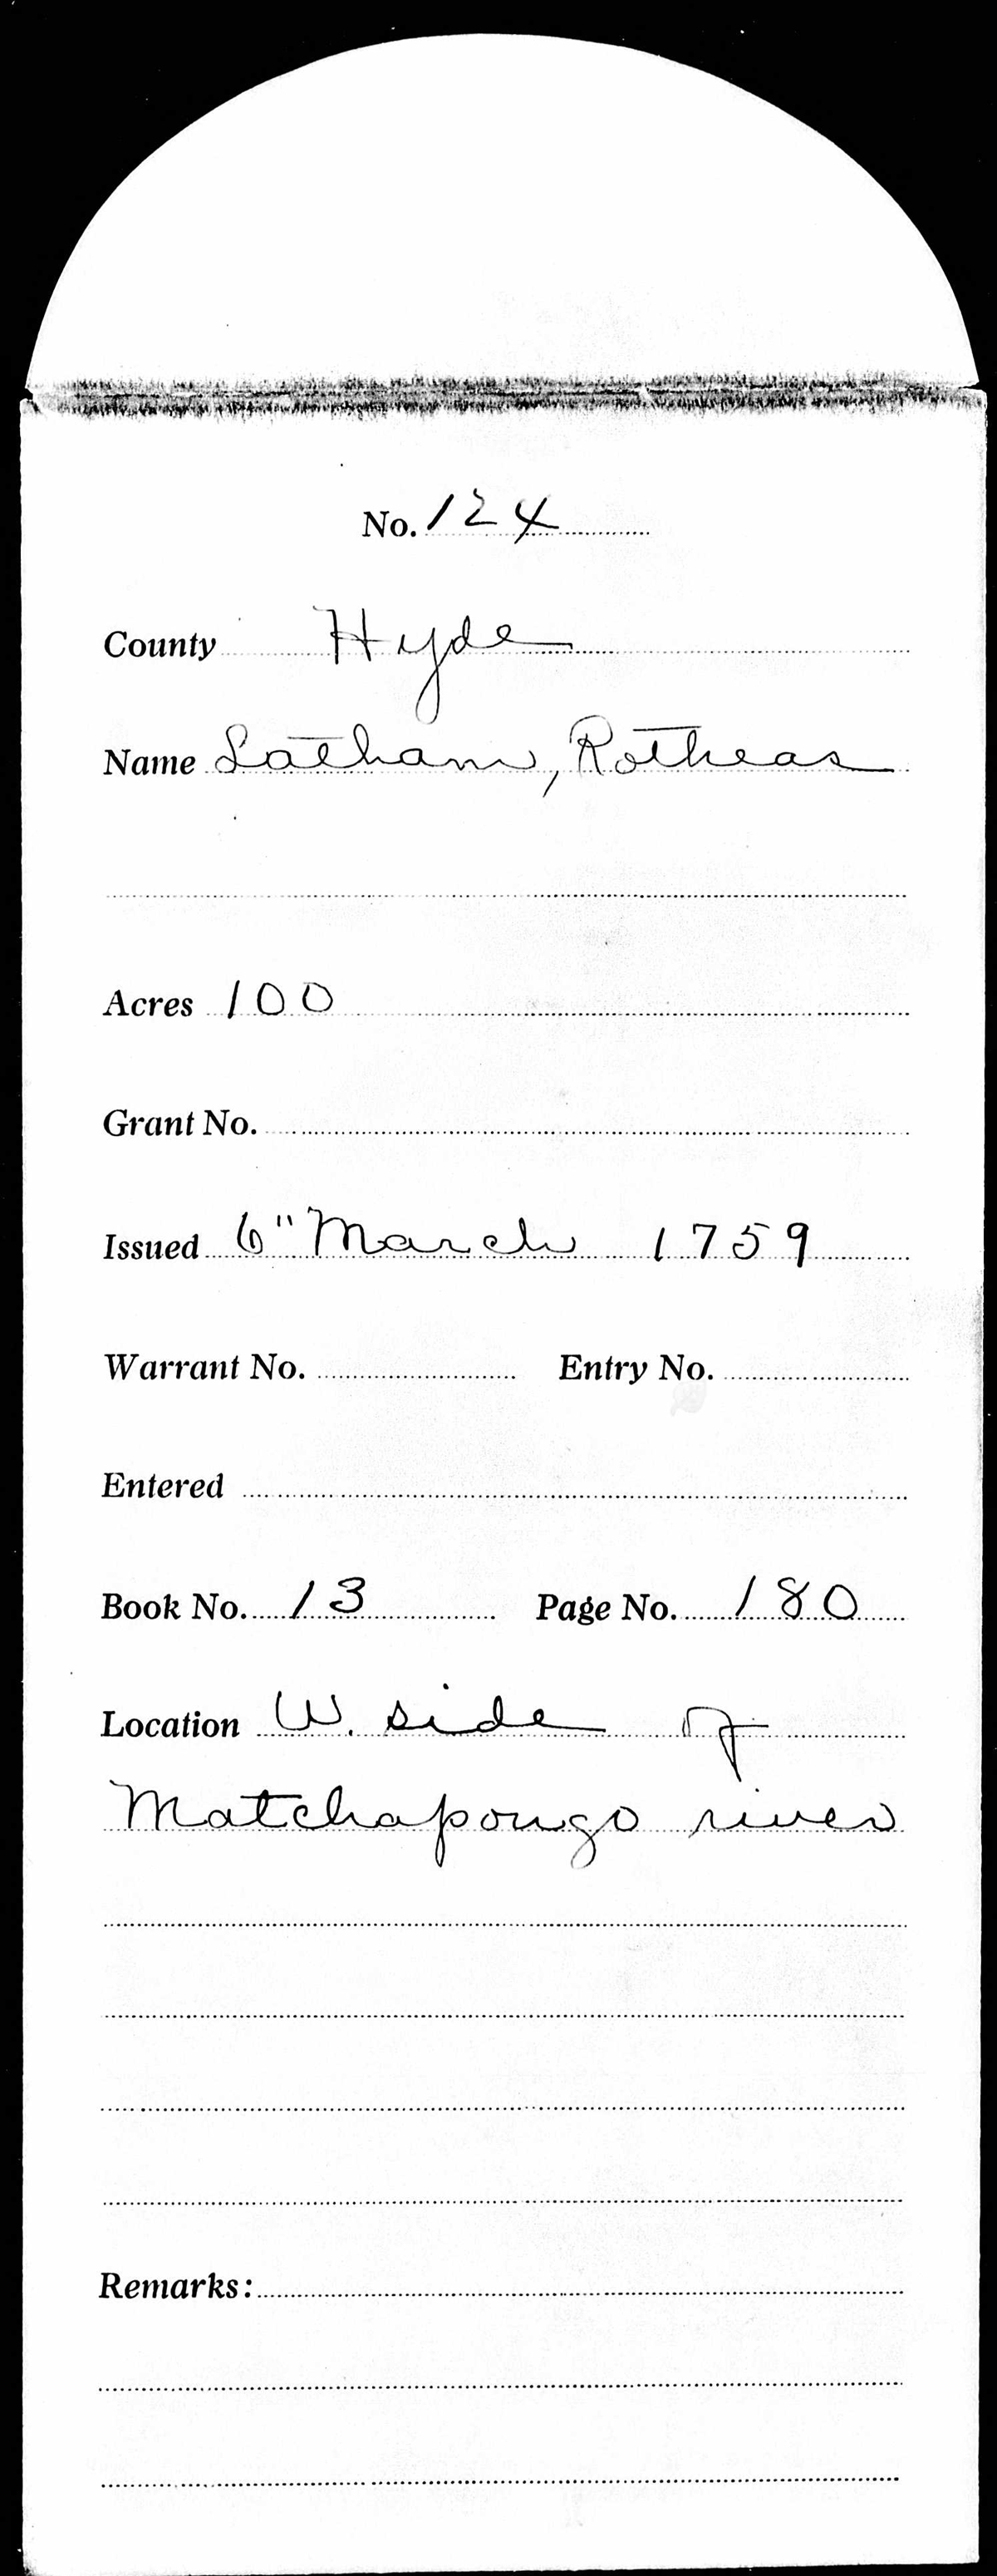 No. 124
County Hyde
Name Latham, Rotheas
Acres 100
Grant No.
Issued 6" March 1759
Warrant No. Entry No.
Entered
Book No. 13 Page No. 180
Location W. side of
Matchapongo river
Remarks: